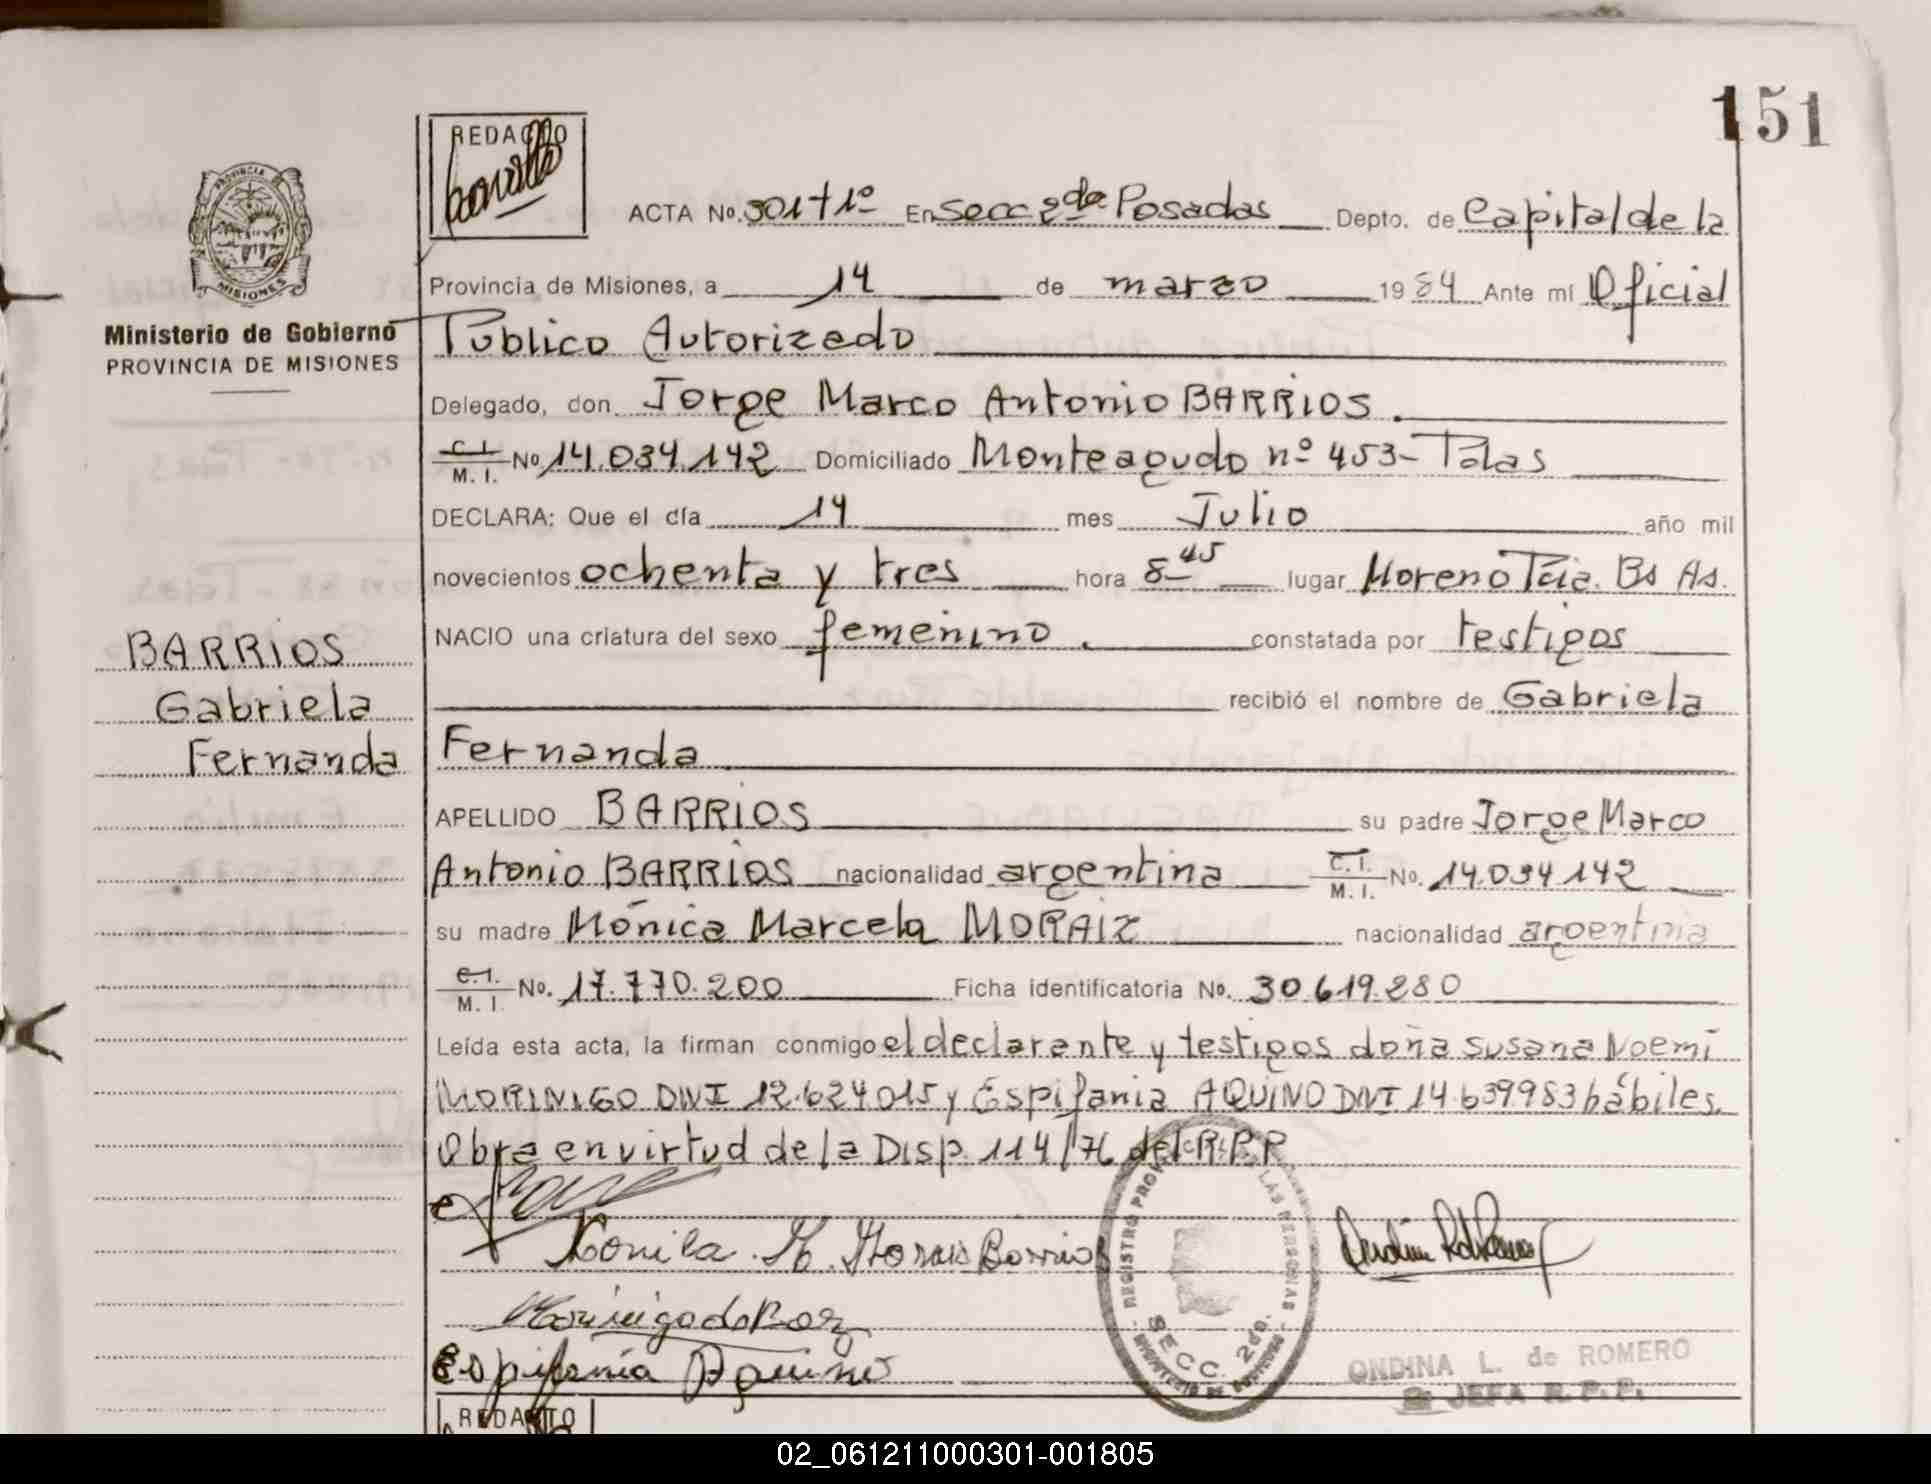 151
REDACTO
PROVINCIA DE
MISIONES
ACTA No. 301 t 1º En Secc 2da Posadas Depto. de Capital de la
Provincia de Misiones, a 14 de marzo 1984 Ante mí Oficial
Ministerio de Gobierno
PROVINCIA DE MISIONES
Público Autorizado
Delegado, don Jorge Marco Antonio BARRIOS.
C. I. / M. I. No 14.034.142 Domiciliado Monteagudo nº 453- Pdas
DECLARA: Que el día 14 mes Julio año mil
novecientos ochenta y tres hora 8-45 lugar Moreno Pcia. Bs As.
NACIO una criatura del sexo femenino. constatada por testigos
BARRIOS
Gabriela
Fernanda
recibió el nombre de Gabriela
Fernanda
APELLIDO BARRIOS su padre Jorge Marco
Antonio BARRIOS nacionalidad argentina C. I. / M. I. No. 14.034 142
su madre Mónica Marcela MORAIZ nacionalidad argentina
C. I. / M. I. No. 17.770.200 Ficha identificatoria No. 30.619.280
Leída esta acta, la firman conmigo el declarante y testigos doña Susana Noemí
MORINIGO DNI 12.624 015 y Espifania AQUINO DNI 14.639983 hábiles.
Obra en virtud de la Disp. 114/76 del R.P.P
Morinigo de
Espifania Aquino
REGISTRO PROV LAS PERSONAS
SECC. 2da.
ONDINA L. de ROMERO
JEFA R. P. P.
REDACTO
02_061211000301-001805